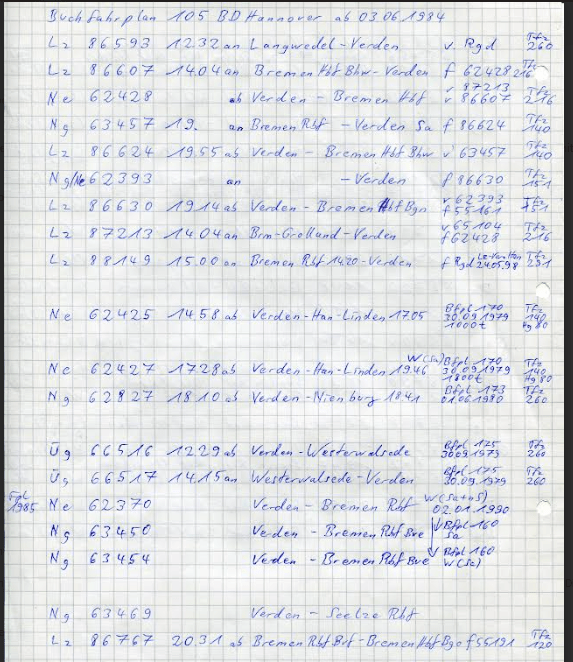 Buchfahrplan 105 BD Hannover ab 03.06.1984
Lz 86593 1232 an Langwedel-Verden v. Rgd Tfz 260
Lz 86607 14.04 an Bremen Hbf Bhw-Verden f 62428 Tfz 216
Ne 62428 ab Verden - Bremen Hbf v 87213 v 86607 Tfz 216
Ng 63457 19. an Bremen Rbf - Verden Sa f 86624 Tfz 140
Lz 86624 19.55 ab Verden - Bremen Hbf Bhw v 63457 Tfz 140
Ng/Ne 62393 an - Verden f 86630 Tfz 151
Lz 86630 1914 ab Verden - Bremen Hbf Bgn v 62393 f 55161 Tfz 151
Lz 87213 1404 an Brm-Grolland-Verden v 65104 f 62428 Tfz 216
Lz 88149 15.00 an Bremen Rbf 1420-Verden f Rgd 24.05.98 Tfz 231
Ne 62425 1458 ab Verden-Han-Linden 1705 Bfpl 170 30.09.1979 1000t Tfz 140 Hg 80
Ne 62427 1728 ab Verden-Han-Linden 1946 W(Sa) Bfpl 170 30.09.1979 1800t Tfz 140 Hg 80
Ng 62827 1810 ab Verden-Nienburg 1841 Bfpl 173 01.06.1980 Tfz 260
Üg 66516 1229 ab Verden-Westerwalsede Bfpl 175 30.09.1979 Tfz 260
Üg 66517 1415 an Westerwalsede-Verden Bfpl 175 30.09.1979 Tfz 260
Fpl 1985 Ne 62370 Verden - Bremen Rbf W(Sa+aS) 02.01.1990
Ng 63450 Verden - Bremen Rbf Bve Bfpl 160 Sa
Ng 63454 Verden - Bremen Rbf Bve Bfpl 160 W(Sa)
Ng 63469 Verden - Seelze Rbf
Lz 86767 2031 ab Bremen Rbf Brf-Bremen Hbf Bge f 55191 Tfz 120